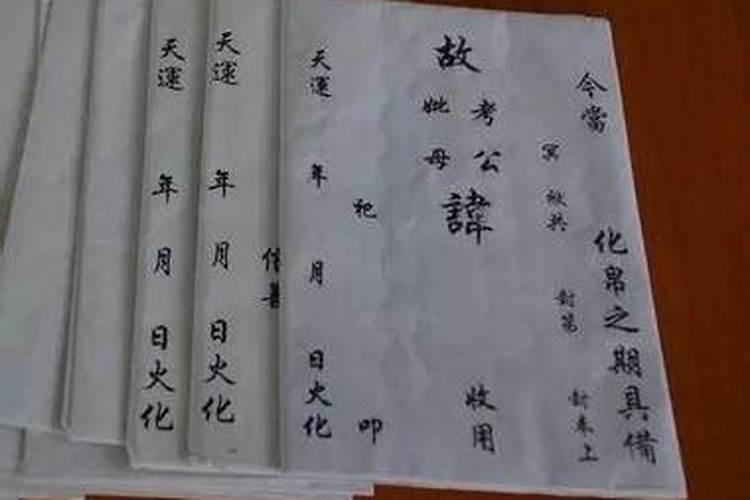 今當 化帛之期具備
冥 袱共 封第 封奉上
故
考公
妣母
諱
收用
祀 叩
天運 年 月 日火化
天運 年 月 日火化
天運 年 月 日火化